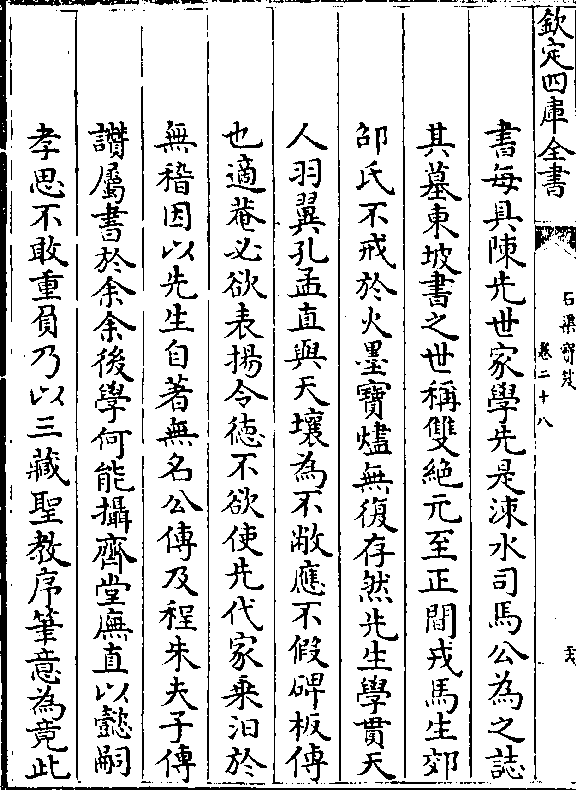 欽定四庫全書
石渠寶笈
卷二十八
書每具陳先世家學先是涑水司馬公為之誌
其墓東坡書之世稱雙絶元至正間戎馬生郊
邵氏不戒於火墨寶燼無復存然先生學貫天
人羽翼孔孟直與天壤為不敝應不假碑板傳
也適菴必欲表揚令徳不欲使先代家乘汨於
無稽因以先生自著無名公傳及程朱夫子傳
讃屬書於余余後學何能攝齊堂廡直以懿嗣
孝思不敢重負乃以三藏聖教序筆意為竟此